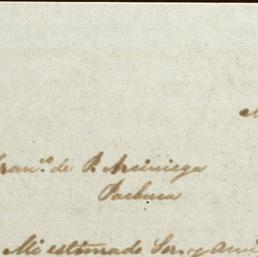 ran.co de P. Arciniega
Pachuca
Mi estimado Sor. y ami